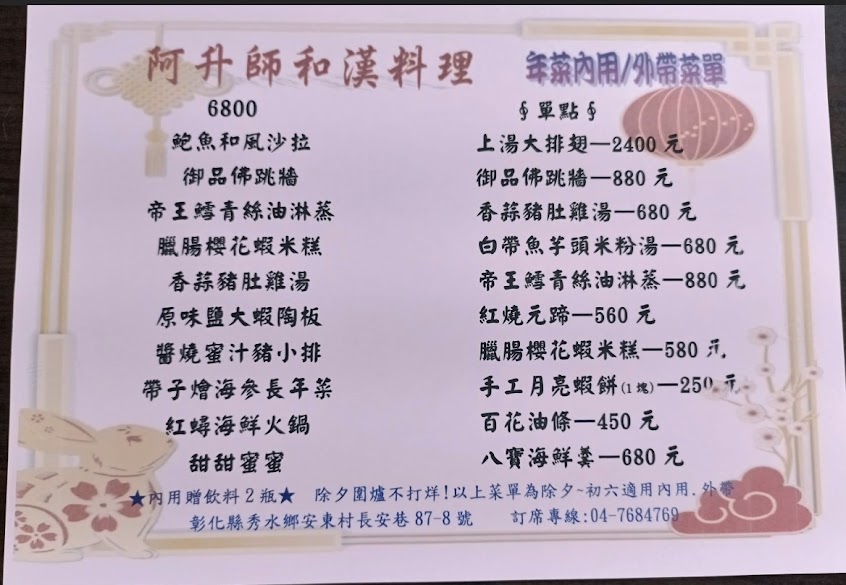 阿升師和漢料理
年菜內用/外帶菜單
6800
鮑魚和風沙拉
御品佛跳牆
帝王鱈青絲油淋蒸
臘腸櫻花蝦米糕
香蒜豬肚雞湯
原味鹽大蝦陶板
醬燒蜜汁豬小排
帶子燴海參長年菜
紅蟳海鮮火鍋
甜甜蜜蜜
§單點§
上湯大排翅—2400 元
御品佛跳牆—880 元
香蒜豬肚雞湯—680 元
白帶魚芋頭米粉湯—680 元
帝王鱈青絲油淋蒸—880 元
紅燒元蹄—560 元
臘腸櫻花蝦米糕—580 元
手工月亮蝦餅(1塊)—250 元
百花油條—450 元
八寶海鮮羹—680 元
★內用贈飲料2瓶★ 除夕圍爐不打烊!以上菜單為除夕~初六適用內用.外帶
彰化縣秀水鄉安東村長安巷 87-8 號 訂席專線:04-7684769